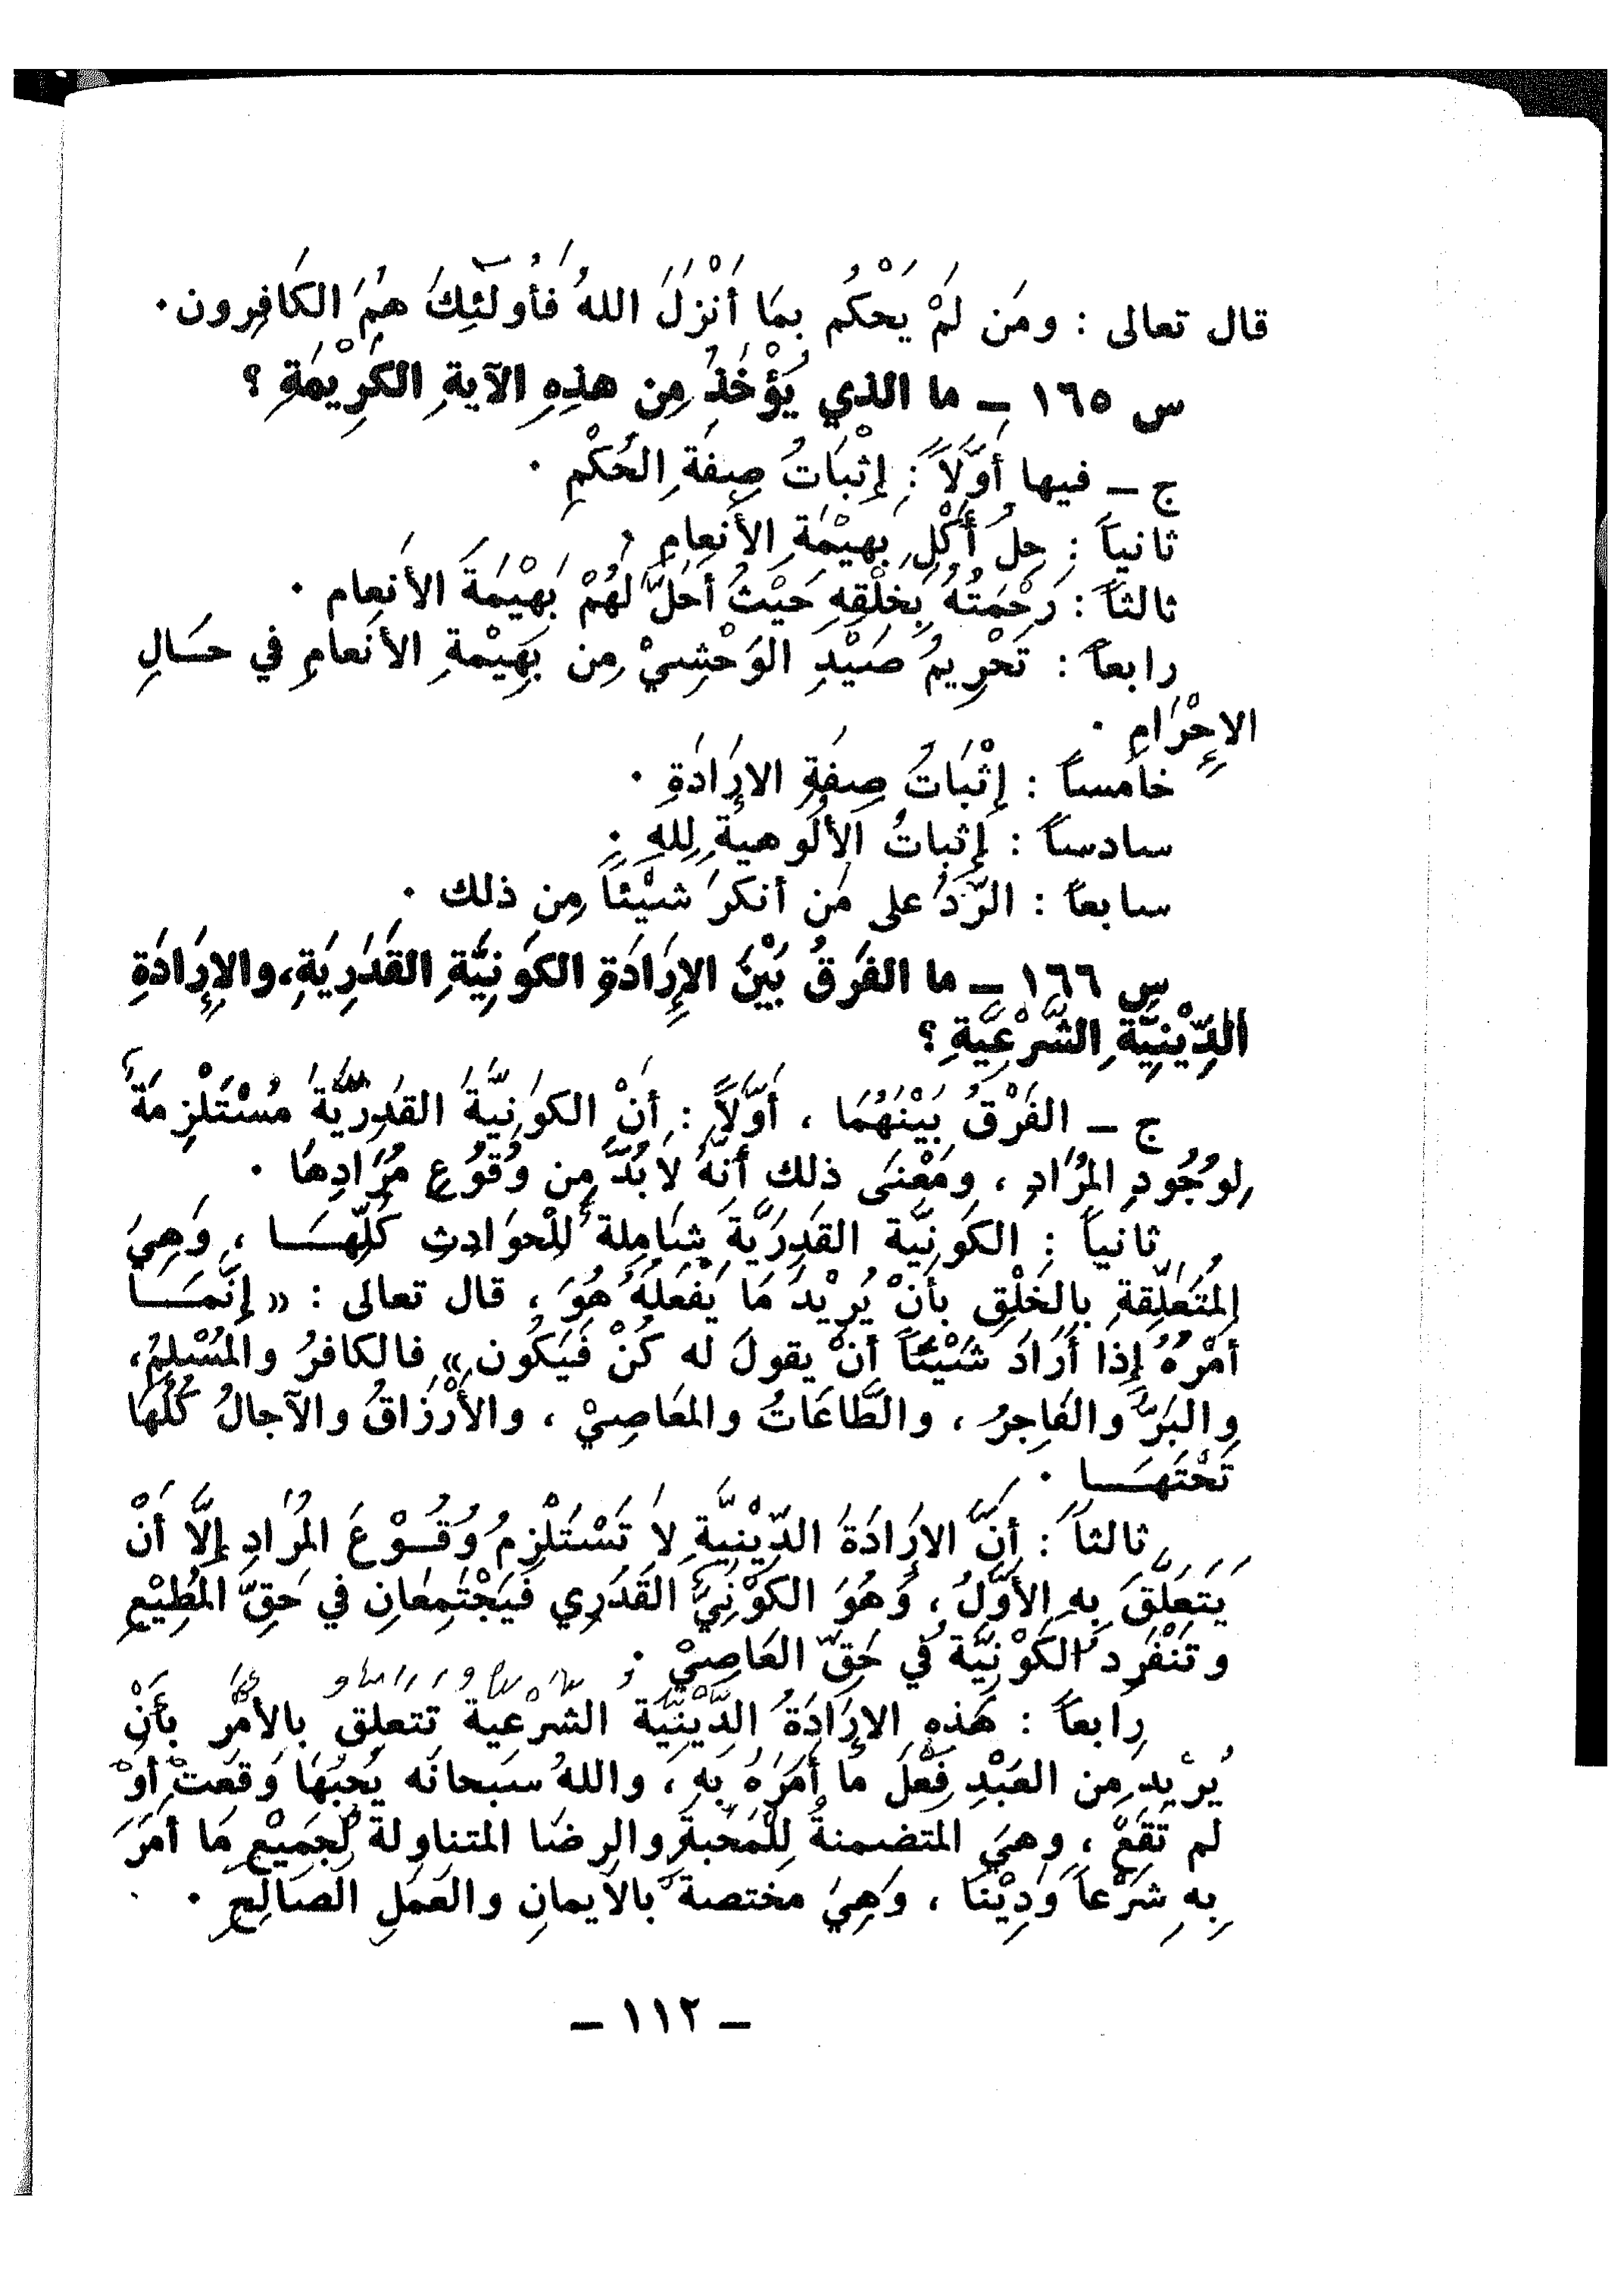 قال تعالى : ومَن لَمْ يَحْكُم بِمَا أَنْزَلَ اللهُ فَأُولَئِكَ هُمُ الكَافِرون .
س ١٦٥ ــ ما الذي يُؤْخَذُ مِن هذِهِ الآيةِ الكَرِيْمَةِ ؟
ج ــ فيها أَوَّلاً : إِثْبَاتُ صِفَةِ الحُكْمِ .
ثانياً : حِلُ أَكْلِ بَهيْمَةِ الأَنعامِ .
ثالثاً : رَحْمَتُهُ بِخَلْقِهِ حَيْثُ أَحَلَّ لَهُمْ بَهْيْمَةَ الأنعام .
رابعاً : تَحْرِيمُ صَيْدِ الوَحْشِيْ مِن بَهَيْمةِ الأَنعامِ في حَـالِ
الإِحْرَامِ .
خامساً : إِثْبَاتُ صِفَةِ الإرَادَةِ .
سادساً : إِثباتُ الأُلُوهيةِ لِلهِ .
سابعاً : الرَّدُ على مَن أنكرَ شَيْئاً مِن ذلك .
س ١٦٦ ــ ما الفَرَقُ بَيْنَ الإِرَادَةِ الكَوَنِيَّةِ القَدَرِيَةِ، والإِرَادَةِ
الدِّيْنِيَّةِ الشَّرْعِيَّةِ ؟
ج ــ الفَرْقُ بَيْنَهُمَا ، أَوَّلاً : أَنْ الكَوَنِيَّةَ القَدَرِيَّةَ مُسْتَلْزِمَةً
لِوُجُودِ المُرَادِ ، ومَعْنَى ذلك أَنَّهُ لاَبُدَّ مِن وُقُوُعِ مُرَادِهَا .
ثانياً : الكَونِيَّة القَدَرِيَّةَ شَامِلة لِلْحوَادِثِ كُلِّهَــا ، وَهِيَ
المُتَعَلِّقةِ بِالخَلْقِ بأَنْ يُرِيْدَ مَا يَفْعَلَهُ هُوَ ، قال تعالى : « إِنَّمَــا
أَمْرُهُ إِذَا أَرَادَ شَيْئاً أَنْ يقولَ له كُنْ فَيَكُون » فالكافرُ والمُسْلِمُ،
والبَرُّ والفَاجِرُ ، والطَّاعَاتُ والمعَاصِيْ ، والأَرْزَاقُ والآجالُ كُلُّهَا
تَحْتَهَــا .
ثالثاً : أَنَّ الإرَادَةَ الدِّيْنِيَّةِ لاَ تَسْتَلْزِمُ وُقُـوْعَ المُرَادِ إِلَّا أَنْ
يَتَعَلَّقَ بِهِ الأَوَّلُ ، وَهُوَ الكَوْنِيَّ القَدَرِي فَيَجْتَمِعَانِ في حَقِّ المُطِيْعِ
وتَنْفَرِدَ الكَوْنِيَّةُ في حَقِّ العَاصِيْ .
رَابعاً : هَذِهِ الإِرَادَةُ الدِّيْنِيَّةُ الشَّرْعية تتعلق بالأَمْرِ بأَنْ
يُرِيْد مِن العَبْدِ فِعْلَ مَا أَمَرَهُ بِهِ ، واللهُ سبحانَه يُحِبُهَا وَقَعَتْ أَوْ
لم تَقَعْ ، وهيَ المتضمنةُ لِلْمَحَبةِ والرضَا المتناولة لِجَمِيْعِ مَا أَمَرَ
بِهِ شَرْعاً وَدِيْنَاً ، وَهِيَ مختصةً بالأيمانِ والعَمَلِ الصالِحِ .
ــ ١١٢ ــ